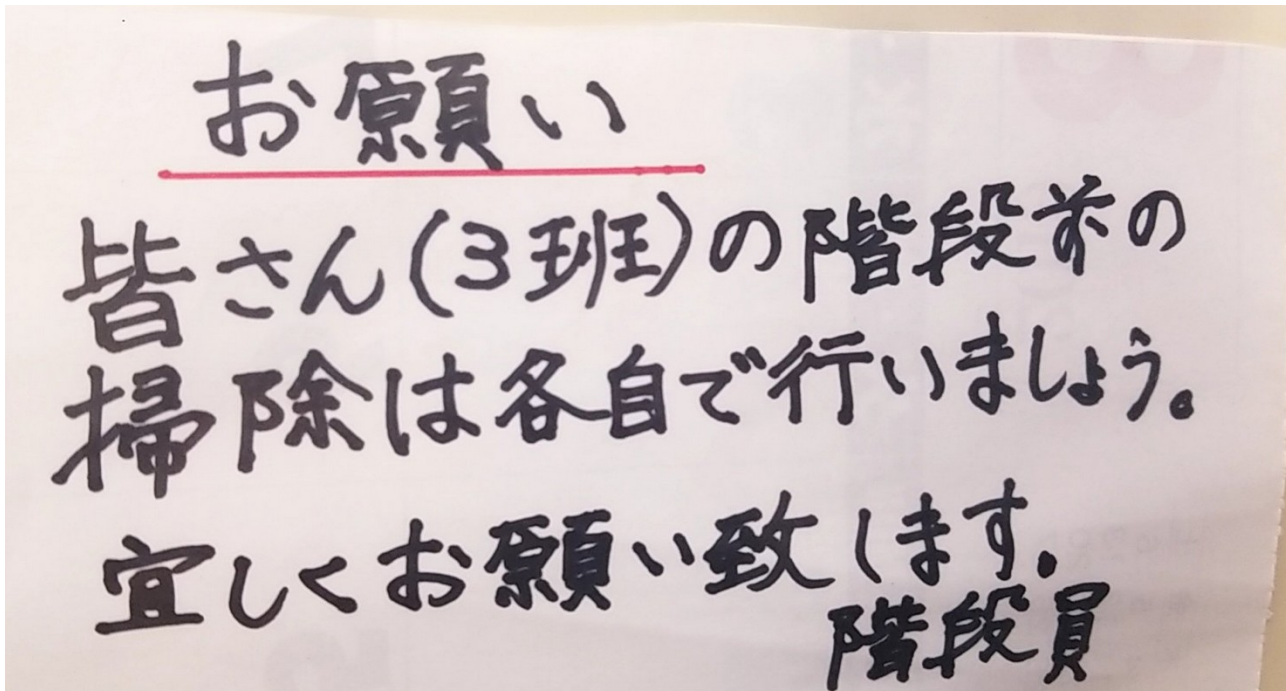 お願い
皆さん(3班)の階段前の
掃除は各自で行いましょう。
宜しくお願い致します.
階段員